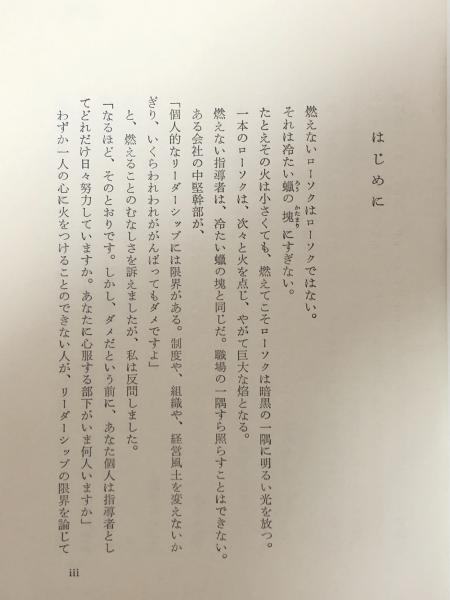 はじめに
燃えないローソクはローソクではない。
それは冷たい蠟の塊にすぎない。
ろう
かたまり
たとえその火は小さくても、燃えてこそローソクは暗黒の一隅に明るい光を放つ。
一本のローソクは、次々と火を点じ、やがて巨大な焰となる。
燃えない指導者は、冷たい蠟の塊と同じだ。職場の一隅すら照らすことはできない。
ある会社の中堅幹部が、
「個人的なリーダーシップには限界がある。制度や、組織や、経営風土を変えないか
ぎり、いくらわれわれががんばってもダメですよ」
と、燃えることのむなしさを訴えましたが、私は反問しました。
「なるほど、そのとおりです。しかし、ダメだという前に、あなた個人は指導者とし
てどれだけ日々努力していますか。あなたに心服する部下がいま何人いますか」
わずか一人の心に火をつけることのできない人が、リーダーシップの限界を論じて
iii